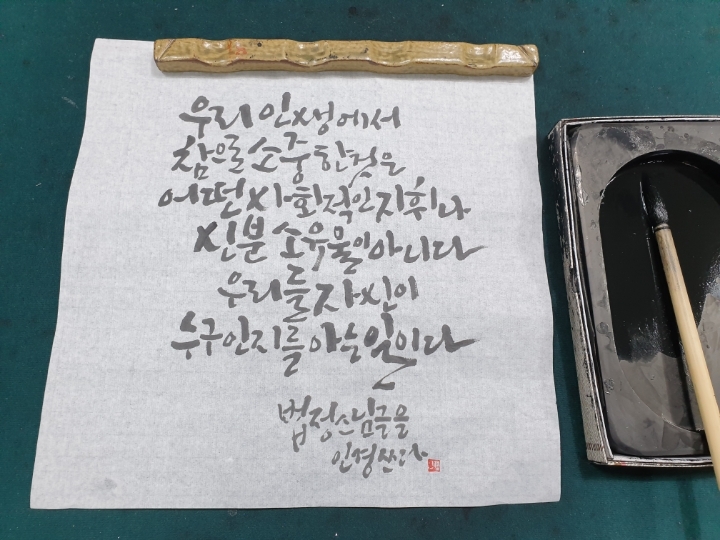 우리 인생에서
참으로 소중한것은
어떤 사회적인 지휘나
신분 소유물이 아니다
우리들 자신이
누구인지를 아는 일이다
법정스님글을
인경쓰다